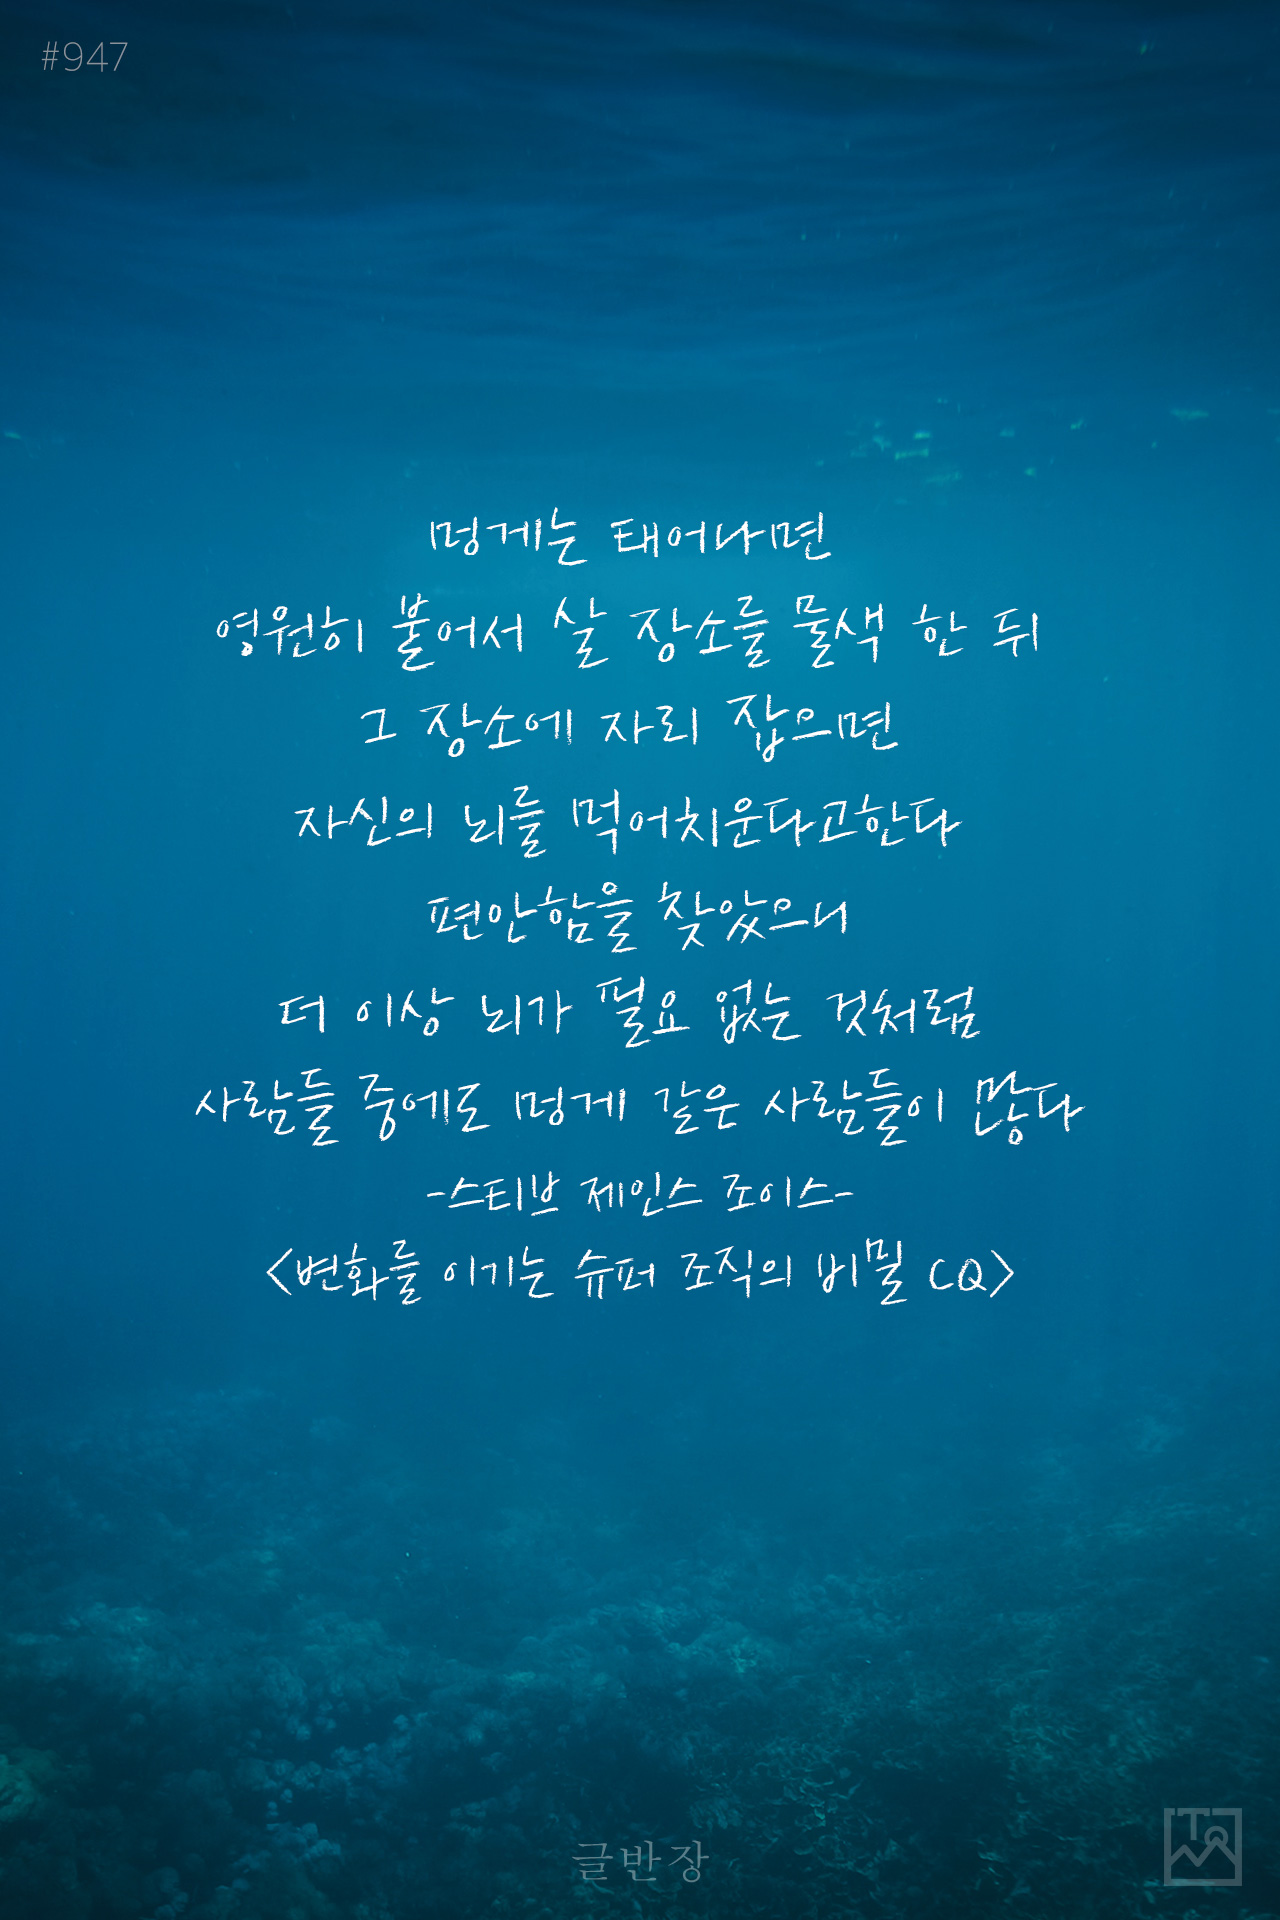 #947
멍게는 태어나면
영원히 붙어서 살 장소를 물색 한 뒤
그 장소에 자리 잡으면
자신의 뇌를 먹어치운다고한다
편안함을 찾았으니
더 이상 뇌가 필요 없는 것처럼
사람들 중에도 멍게 같은 사람들이 많다
-스티브 제인스 조이스-
<변화를 이기는 슈퍼 조직의 비밀 CQ>
글반장